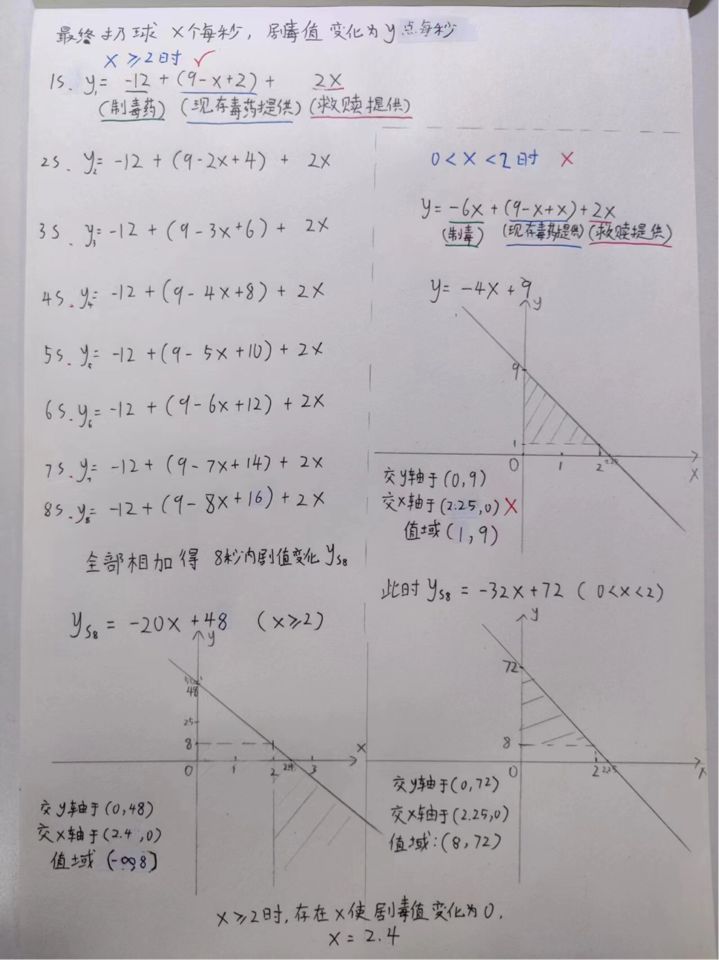 最终扔球 X个每秒，剧毒值变化为y点每秒
X ≥ 2时 ✓
1S. y₁= -12 + (9-x+2) + 2X
(制毒药) (现存毒药提供) (救赎提供)
2S. y₂= -12 + (9-2x+4) + 2X
3S. y₃= -12 + (9-3x+6) + 2X
4S. y₄= -12 + (9-4x+8) + 2X
5S. y₅= -12 + (9-5x+10) + 2X
6S. y₆= -12 + (9-6x+12) + 2X
7S. y₇= -12 + (9-7x+14) + 2X
8S. y₈= -12 + (9-8x+16) + 2X
全部相加得 8秒内剧值变化 yS₈
yS₈ = -20X + 48 (x≥2)
y
48
25
8
0 1 2 2.4 3
X
交y轴于(0,48)
交X轴于(2.4,0)
值域 (-∞,8]
0 < X < 2时 X
y= -6x + (9-x+x) + 2x
(制毒) (现存毒药提供) (救赎提供)
y= -4X + 9
y
9
1
0 1 2 2.25
X
交y轴于(0,9)
交X轴于(2.25,0) X
值域 (1,9)
此时 yS₈ = -32X + 72 (0<x<2)
y
72
8
0 2 2.25
X
交y轴于(0,72)
交X轴于(2.25,0)
值域:(8,72)
X≥2时,存在X使剧毒值变化为0,
X = 2.4